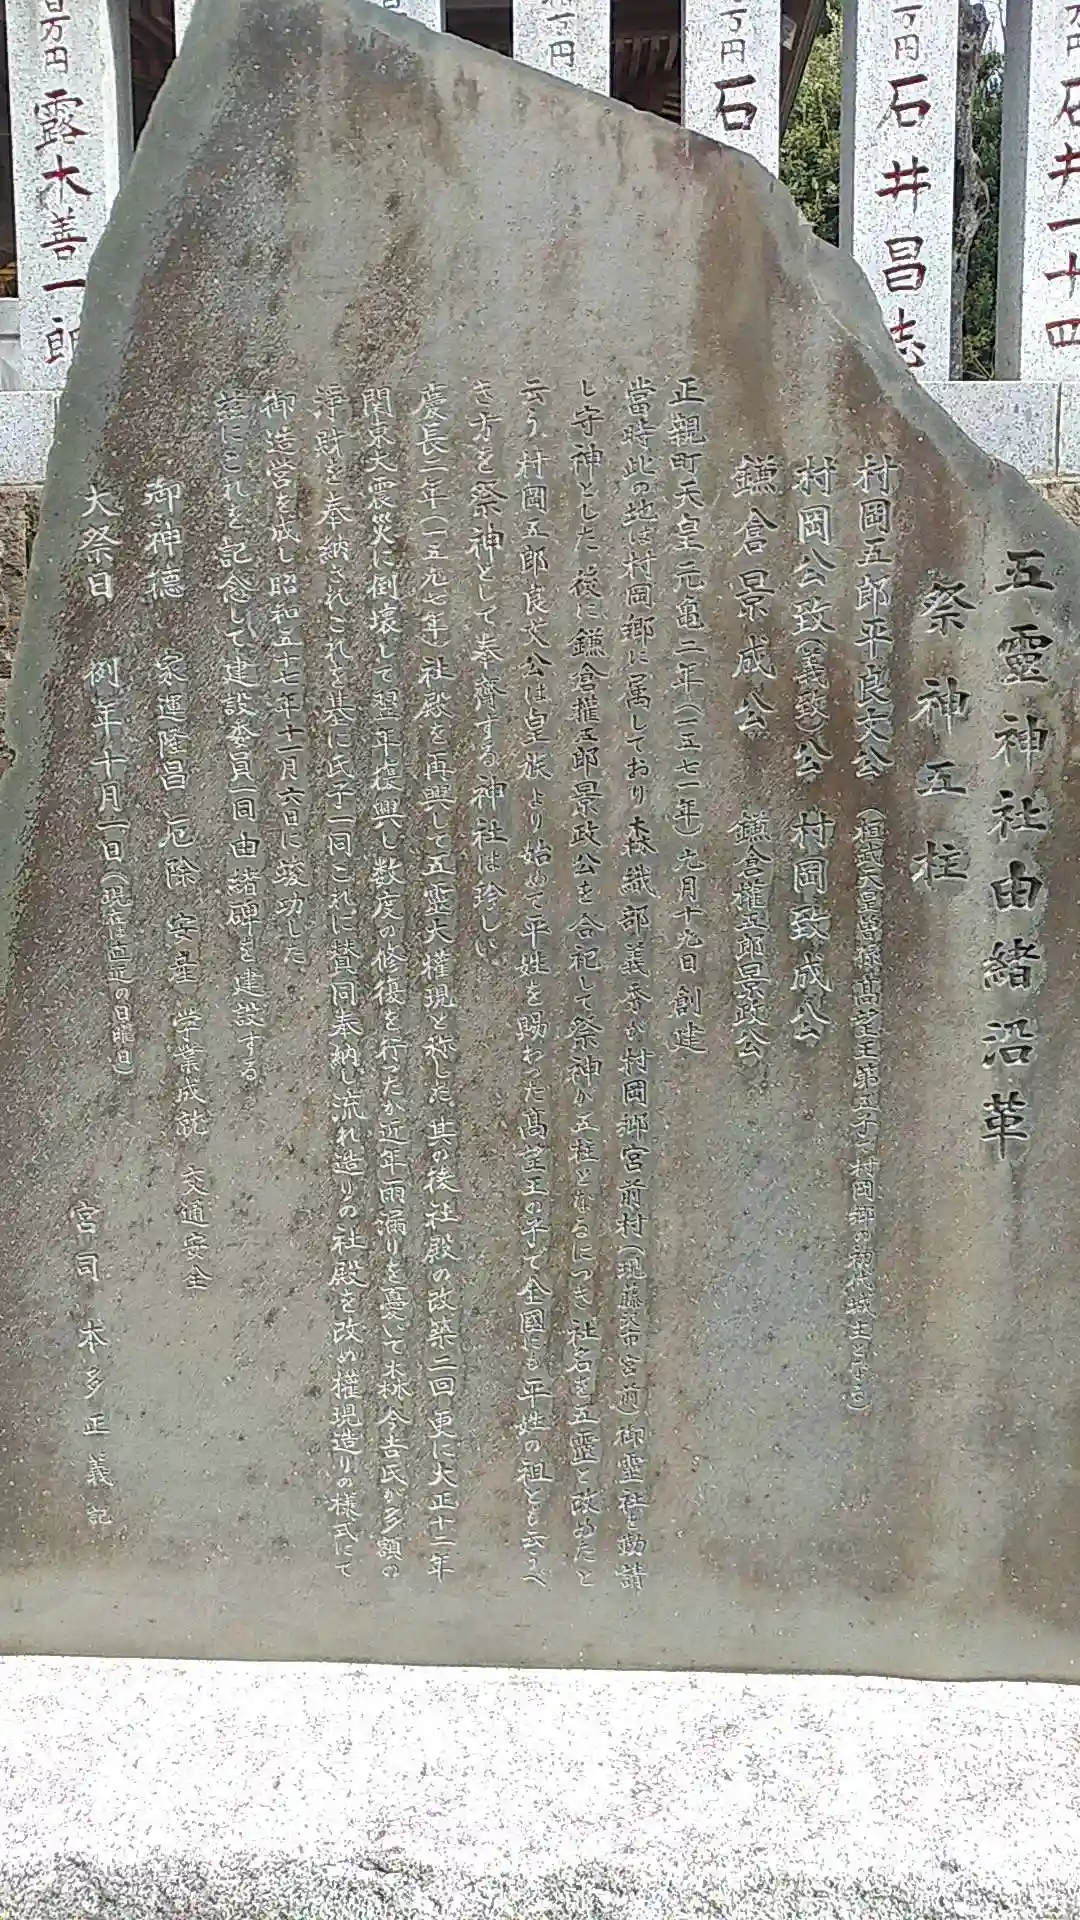 五靈神社由緒沿革
祭神五柱
村岡五郎平良文公 (桓武天皇曽孫髙望王第五子で村岡郷の初代城主となる)
村岡公致(義致)公 村岡致成公
鎌倉景成公 鎌倉權五郎景政公
正親町天皇元亀二年(一五七一年)九月十九日創建
當時此の地は村岡郷に属しており森織部義秀が村岡郷宮前村(現藤沢市宮前)御霊社を勧請
し守神とした 後に鎌倉權五郎景政公を合祀して祭神が五柱となるにつき社名を五靈と改めたと
云う 村岡五郎良文公は皇族より始めて平姓を賜わった髙望王の子で全國にも平姓の祖とも云うべ
き方を祭神として奉齋する神社は珍しい
慶長二年(一五九七年)社殿を再興して五靈大權現と称した 其の後社殿の改築二回更に大正十二年
関東大震災に倒壊して翌年復興し数度の修復を行ったが近年雨漏りを憂いて森今吉氏が多額の
浄財を奉納されこれを基に氏子一同これに賛同奉納し流れ造りの社殿を改め權現造りの様式にて
御造営を成し昭和五十七年十一月六日に竣功した
茲にこれを記念して建設委員一同由緒碑を建設する
御神徳 家運隆昌 厄除 安産 学業成就 交通安全
大祭日 例年十月一日(現在は直近の日曜日)
宮司 本多正義 記
万円 石井一十四
万円 石井昌志
万円 石
万円
百万円 露木善一郎